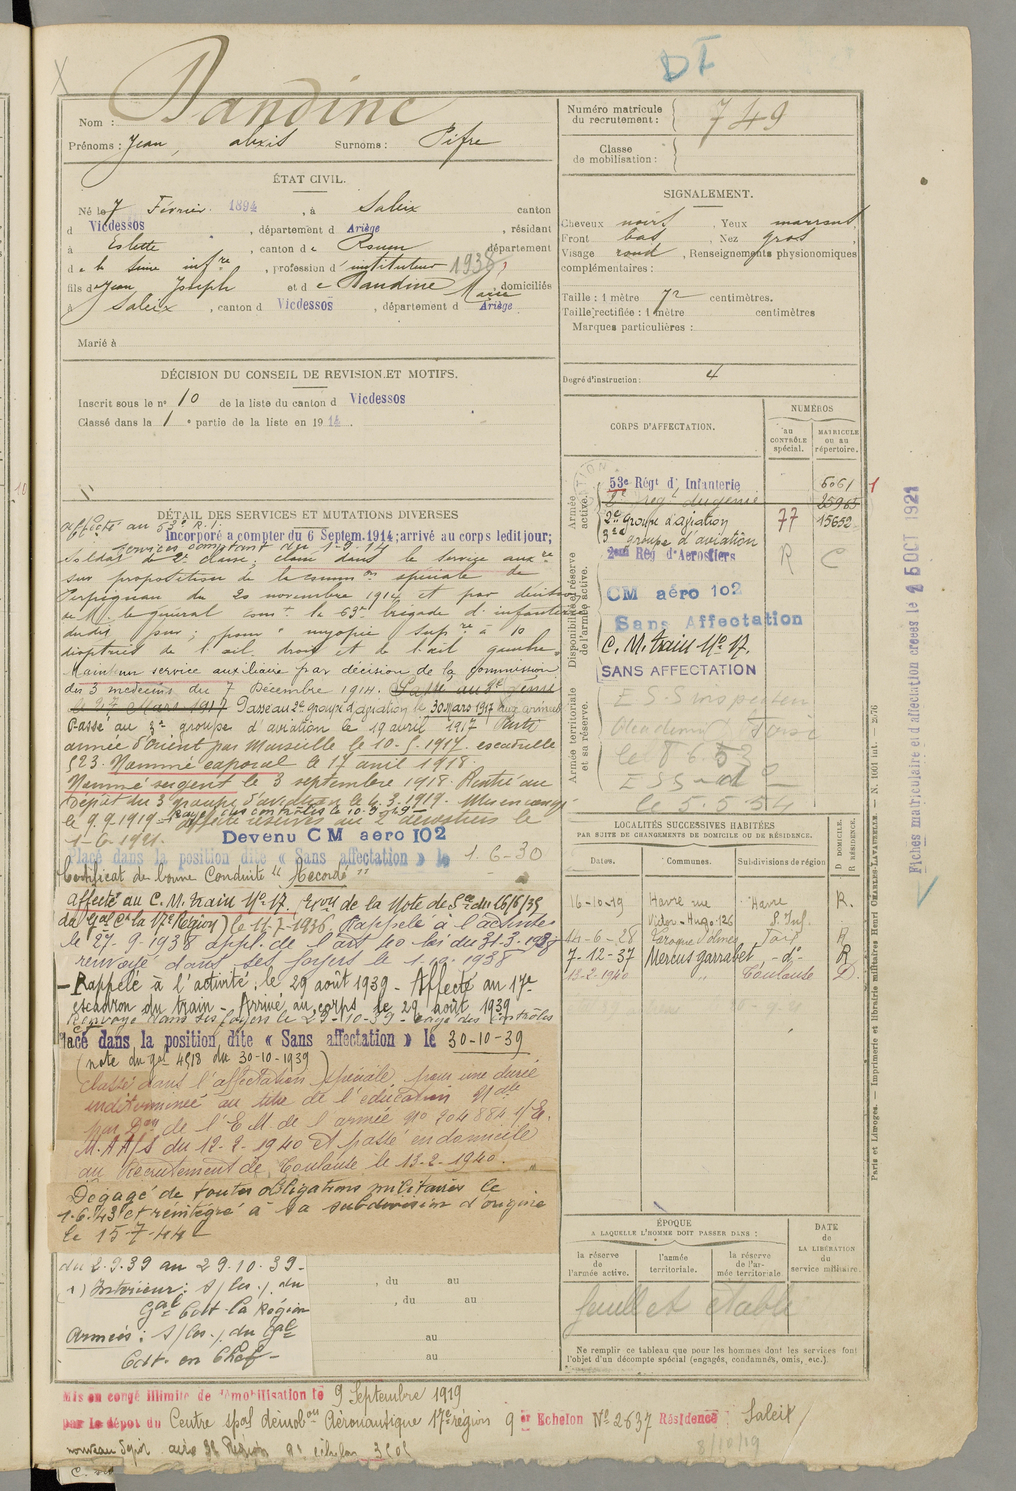 DI
Nom : Dandine
Prénoms : Jean, alexis Surnoms : Pifre
Numéro matricule du recrutement : 749
Classe de mobilisation :
ÉTAT CIVIL.
Né le 7 Février 1894, à Saleix canton
d Vicdessos, département d Ariège, résidant
à Eslette, canton de Rouen département
de la Seine infre, profession d'instituteur 1938
fils de Jean Joseph et de Dandine Marie domiciliés
à Saleix, canton d Vicdessos, département d Ariège.
Marié à
SIGNALEMENT.
Cheveux noirs, Yeux marrons
Front bas, Nez gros
Visage rond, Renseignements physionomiques
complémentaires :
Taille : 1 mètre 72 centimètres.
Taille rectifiée : 1 mètre centimètres
Marques particulières :
Degré d'instruction : 4
DÉCISION DU CONSEIL DE REVISION ET MOTIFS.
Inscrit sous le n° 10 de la liste du canton d Vicdessos
Classé dans la 1e partie de la liste en 1914.
DÉTAIL DES SERVICES ET MUTATIONS DIVERSES
Affecté au 53e R.I.
Incorporé a compter du 6 Septem. 1914; arrivé au corps ledit jour;
services comptant du 1-9-14
Soldat de 2e classe; classé dans le service auxre
sur proposition de la common spéciale de
Perpignan du 20 novembre 1914 et par décision
de M. le général comt la 63e brigade d'infanterie
dudit jour; pour "myopie supre à 10
dioptries de l'œil droit et de l'œil gauche".
Maint. un service auxiliaire par décision de la commission
des 3 médecins du 7 Décembre 1914. Passé au 2e génie
le 27 Mars 1917 Passé au 2e groupe d'aviation le 30 mars 1917
Passé au 3e groupe d'aviation le 19 avril 1917 Parti
armée d'Orient par Marseille le 10-5-1917. escadrille
523. Nommé caporal le 17 avril 1918.
Nommé sergent le 3 septembre 1918. Rentré au
Dépôt du 3e groupe d'aviation le 6.3.1919. Mis en congé
le 9.9.1919. Rayé des contrôles le 10-9-19
1-6-1921.
Devenu CM aero 102
Placé dans la position dite « Sans affectation » le 1-6-30
Certificat de bonne Conduite "Accordé"
Affecté au C.M. train N° 17. de la Note de du 26/6/35
du Gal Ct la 17e Région) le 15-7-1936. Rappelé à l'activité
le 27.9.1938 appl. de l'art 40 loi du 31-3-1928
renvoyé dans ses foyers le 1-10-1938
- Rappelé à l'activité : le 29 août 1939 - Affecté au 17e
escadron du train - Arrivé au corps le 29 août 1939
Renvoyé dans ses foyers le 29-10-39 - Rayé des contrôles
Placé dans la position dite « Sans affectation » le 30-10-39
(note du gal 4518 du 30-10-1939)
Classé dans l'affectation spéciale pour une durée
indéterminée au titre de l'éducation Nale
par Don de l'E.M. de l'armée N° 204884 1/E.
M.A.A/S du 12-2-1940 et passé en domicile
au Recrutement de Toulouse le 13-2-1940.
Dégagé de toutes obligations militaires le
1.6.43 et réintégré à sa subdivision d'origine
le 15-7-44
du 2.9.39 au 29.10.39 -
1) Intérieur : du
Gal Cdt la Région
Armées : du Gal
Cdt en Chef -
, du au
, du au
au
au
CORPS D'AFFECTATION.
NUMÉROS
au CONTRÔLE spécial.
MATRICULE ou au répertoire.
Armée active.
Disponibilité et réserve de l'armée active.
Armée territoriale et sa réserve.
53e Régt d'Infanterie 6061
2e régt du génie 25965
2e Groupe d'aviation 77 15652
3e groupe d'aviation
2eme Reg d'Aerostiers R C
CM aéro 102
Sans Affectation
C. M. train N° 17.
SANS AFFECTATION
le 8 6.53
le 5.5.54
LOCALITÉS SUCCESSIVES HABITÉES
PAR SUITE DE CHANGEMENTS DE DOMICILE OU DE RÉSIDENCE.
Dates. Communes. Subdivisions de région D DOMICILE. R RÉSIDENCE.
16-10-19 Havre rue Havre R.
Victor-Hugo-126 S. Inf.
14-6-28 Laroque d'Olmes Foix R
7-12-37 Mercus garrabet - d°- R
13-2-1940 " Toulouse D.
ÉPOQUE
A LAQUELLE L'HOMME DOIT PASSER DANS :
la réserve de l'armée active.
l'armée territoriale.
la réserve de l'armée territoriale
DATE de LA LIBÉRATION du service militaire.
feuillet établi
Ne remplir ce tableau que pour les hommes dont les services font
l'objet d'un décompte spécial (engagés, condamnés, omis, etc.).
Mis en congé illimité de démobilisation le 9 Septembre 1919
par le dépôt du Centre spal démobon Aéronautique 17e région 9e Echelon N° 2637 Résidence Saleix
8/10/19
Fiches matriculaire et d'affectation créées le 15 OCT 1921
Paris et Limoges. — Imprimerie et librairie militaires Henri CHARLES-LAVAUZELLE. — N. 1601 int. —